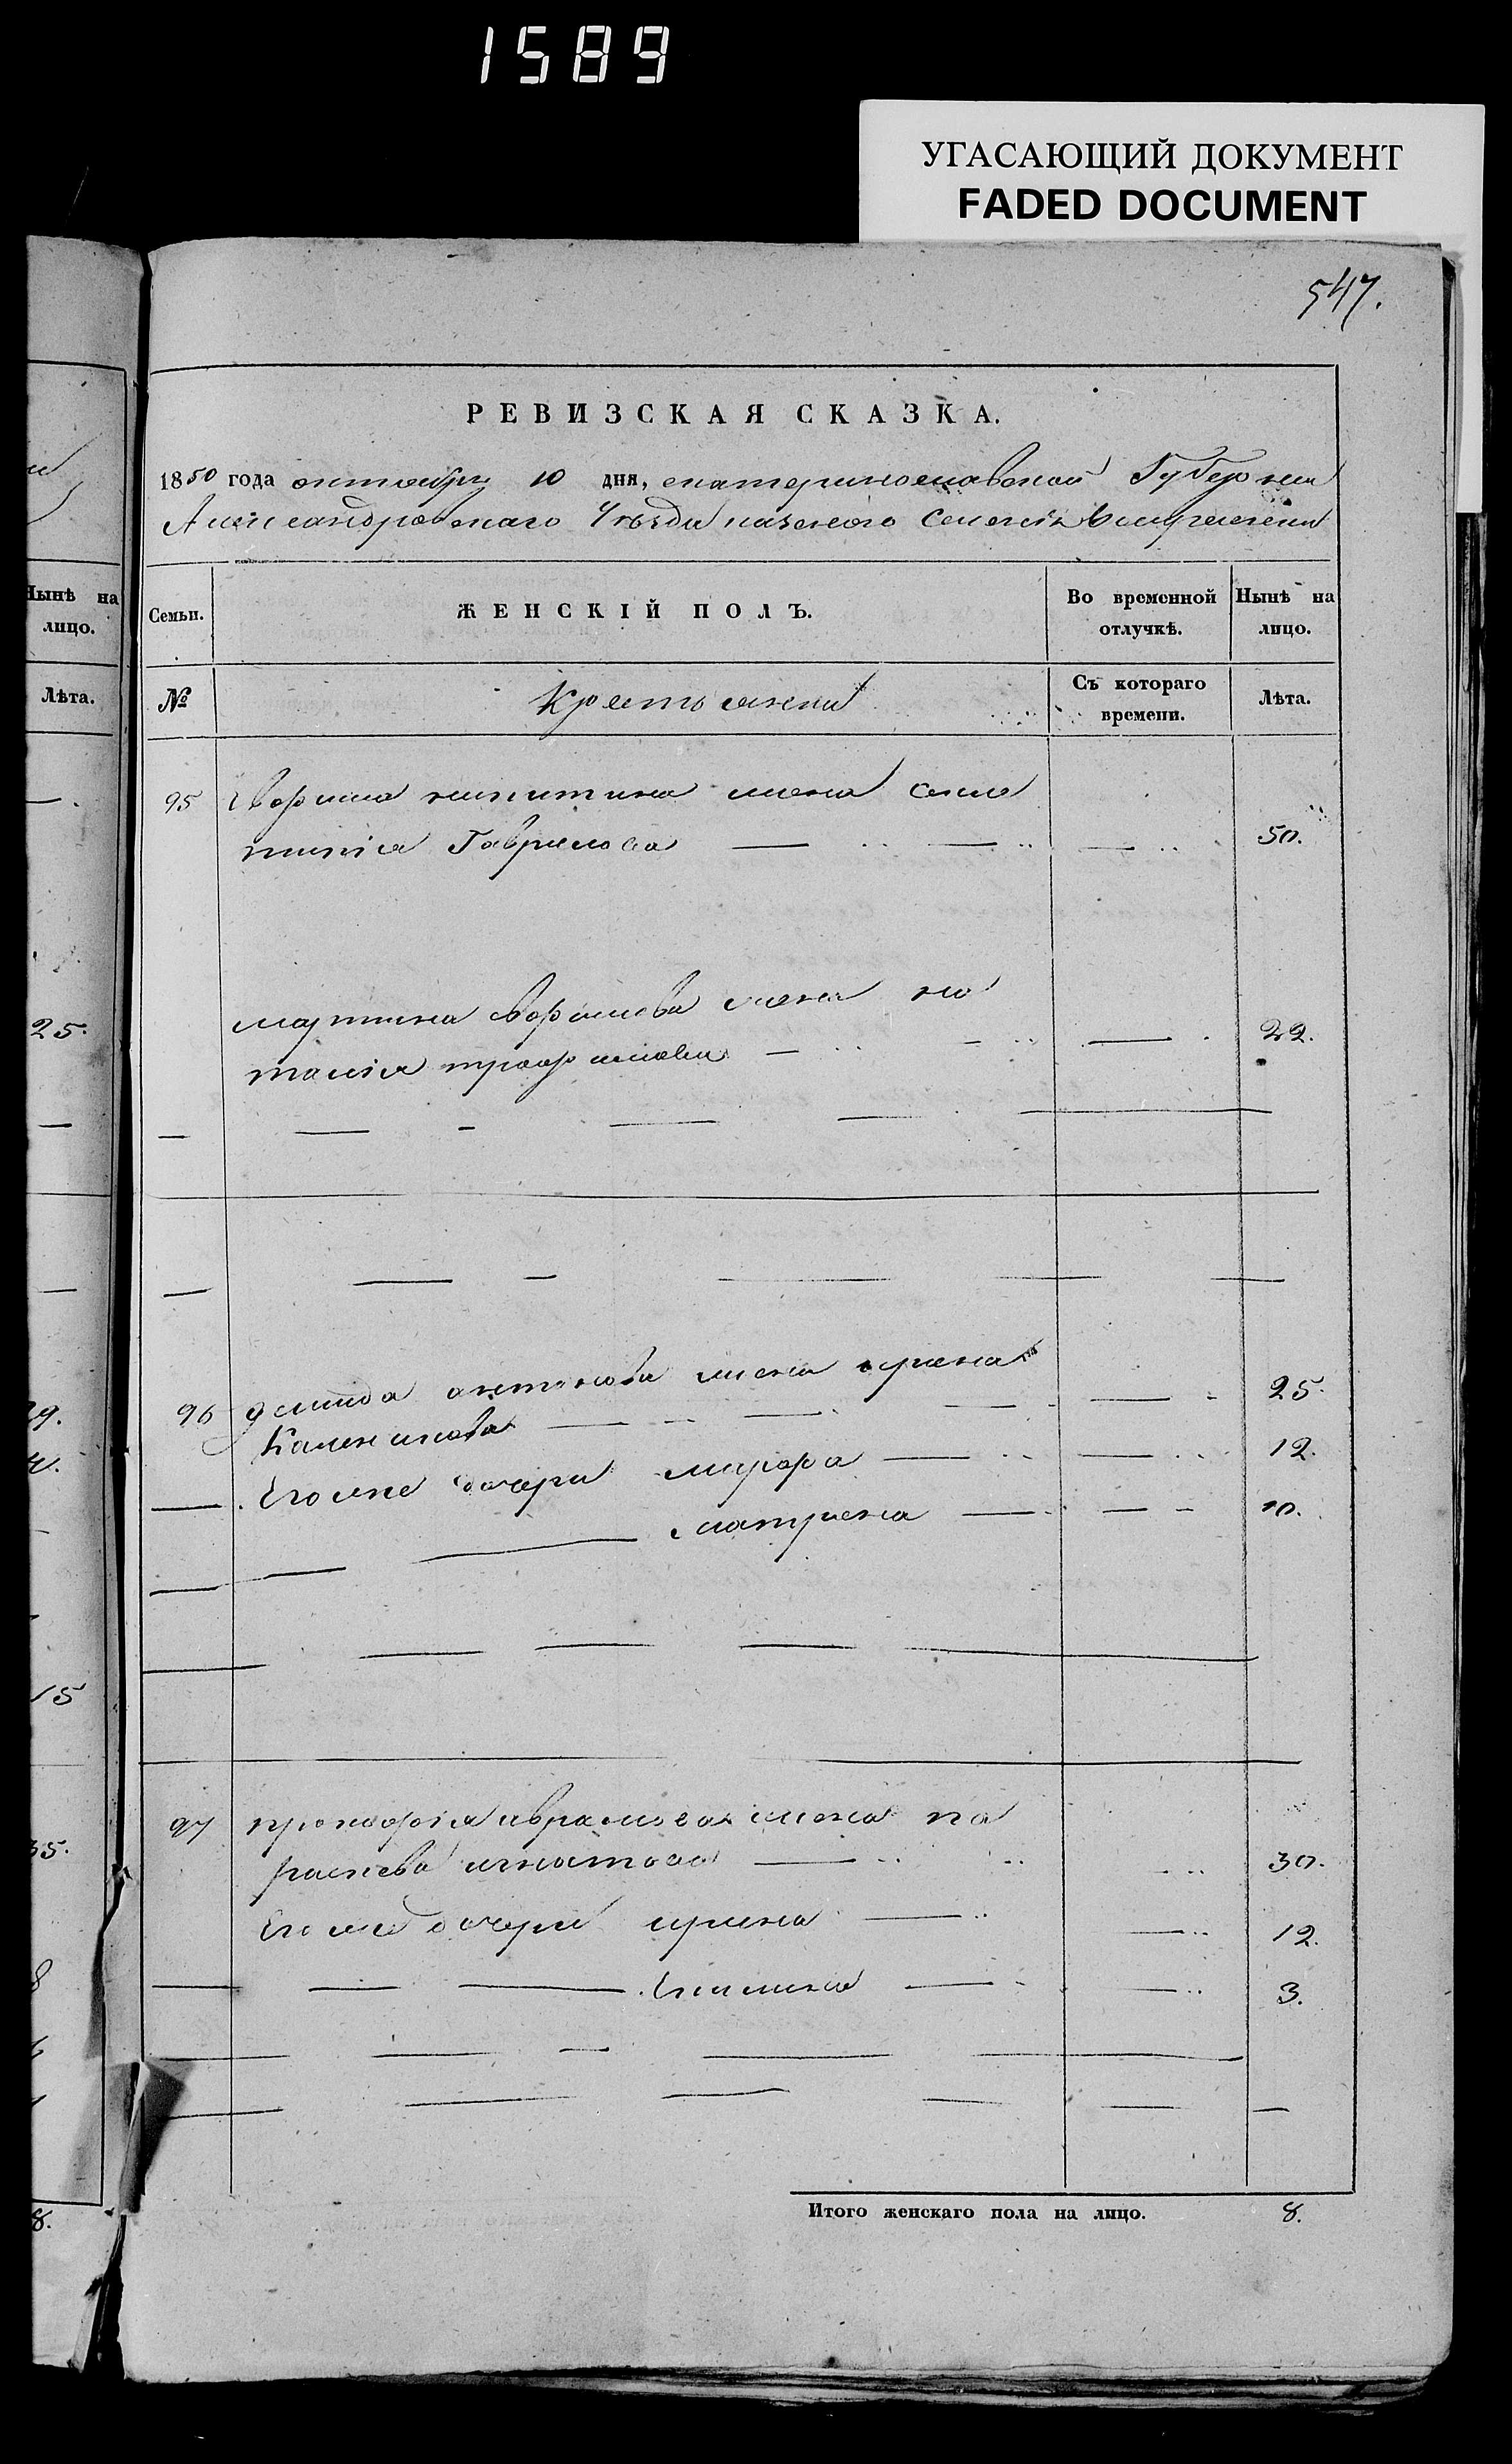 1589
УГАСАЮЩИЙ ДОКУМЕНТ
FADED DOCUMENT
547.
РЕВИЗСКАЯ СКАЗКА.
1850 года октября 10 дня, екатеринославской Губернии
Александровскаго Уѣзда казеного Селенія
Семьи.
ЖЕНСКІЙ ПОЛЪ.
Во временной отлучкѣ.
Нынѣ на лицо.
№
Крестьяни
Съ котораго времени.
Лѣта.
95 никитина жена
Гаврилова 50.
мартина жена на
талія трофимова 22.
96 демида антонова жена ирена 25.
Его же дочери марфа 12.
матрена 10.
97 прокофія аврамова жена па
раскева игнатова 30.
Его же дочери ирина 12.
3.
Итого женскаго пола на лицо. 8.
Нынѣ на лицо.
Лѣта.
25.
15
8.